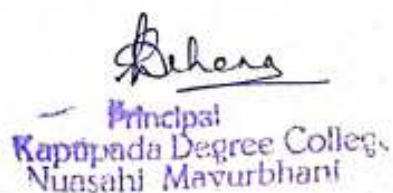 Behera
Principal
Kaptipada Degree College
Nuasahi Mayurbhanj